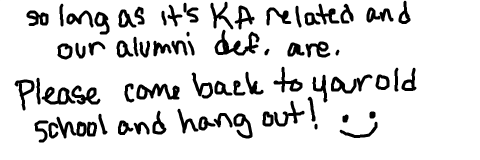 so long as it's KA related and
our alumni def. are.
Please come back to your old
school and hang out! :)